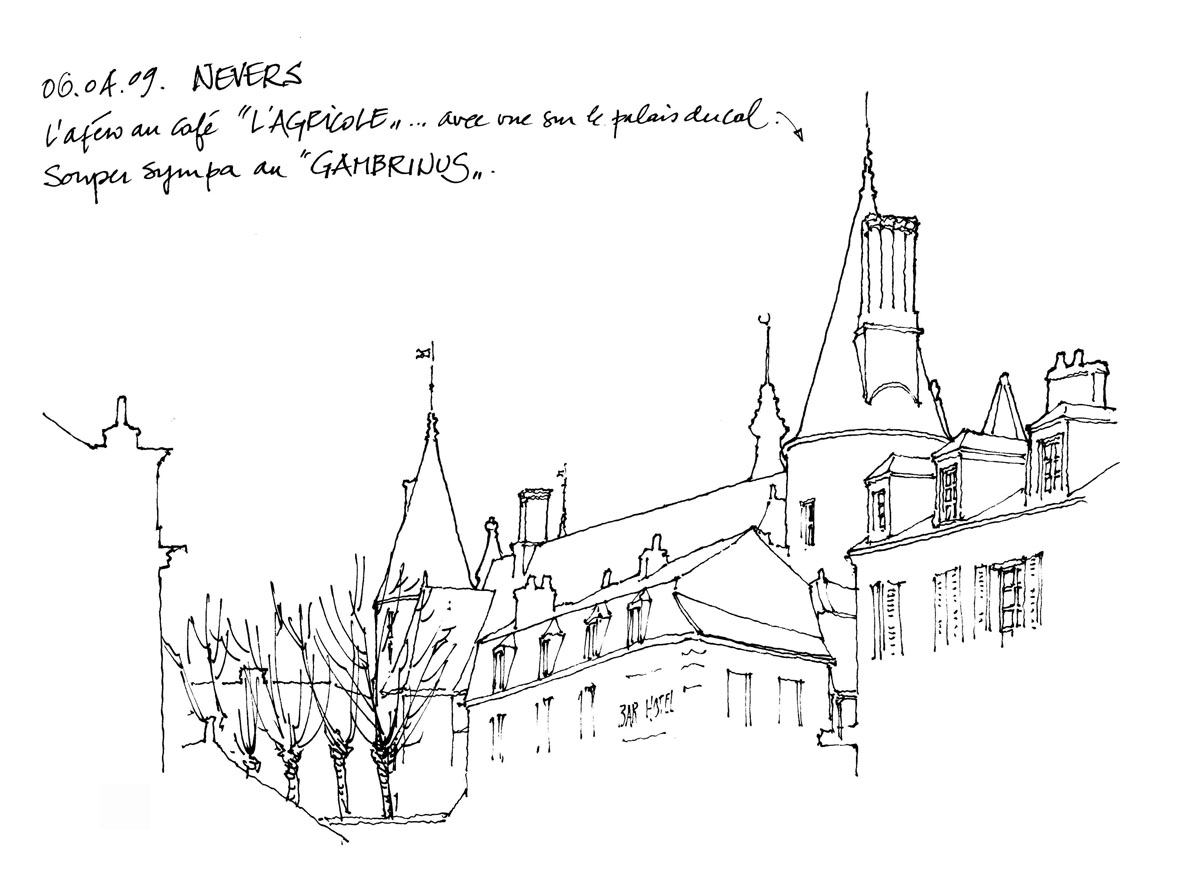 06.04.09. NEVERS
L'apéro au café "L'AGRICOLE„... avec vue sur le palais ducal.
Souper sympa au "GAMBRINUS„.
BAR HOTEL